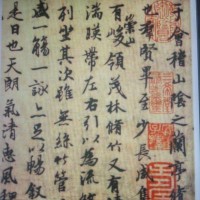 于會稽山陰之蘭亭脩
也群賢畢至少長咸
有崇山峻領茂林脩竹又有清
湍暎帶左右引以為流
列坐其次雖無絲竹管
盛一觴一詠亦足以暢叙
是日也天朗氣清惠風